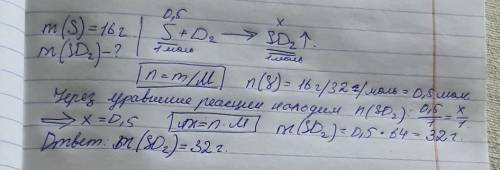 m(S)=16г | 0,5 x
m(SO₂)-? | S + O₂ → SO₂↑.
1 моль 1 моль
n=m/M n(S) = 16г/32г/моль = 0,5 моль
Через уравнение реакции находим n(SO₂): 0,5/1 = x/1
⇒ x = 0,5 m=n·M m(SO₂) = 0,5 · 64 = 32 г.
Ответ: m(SO₂) = 32г.